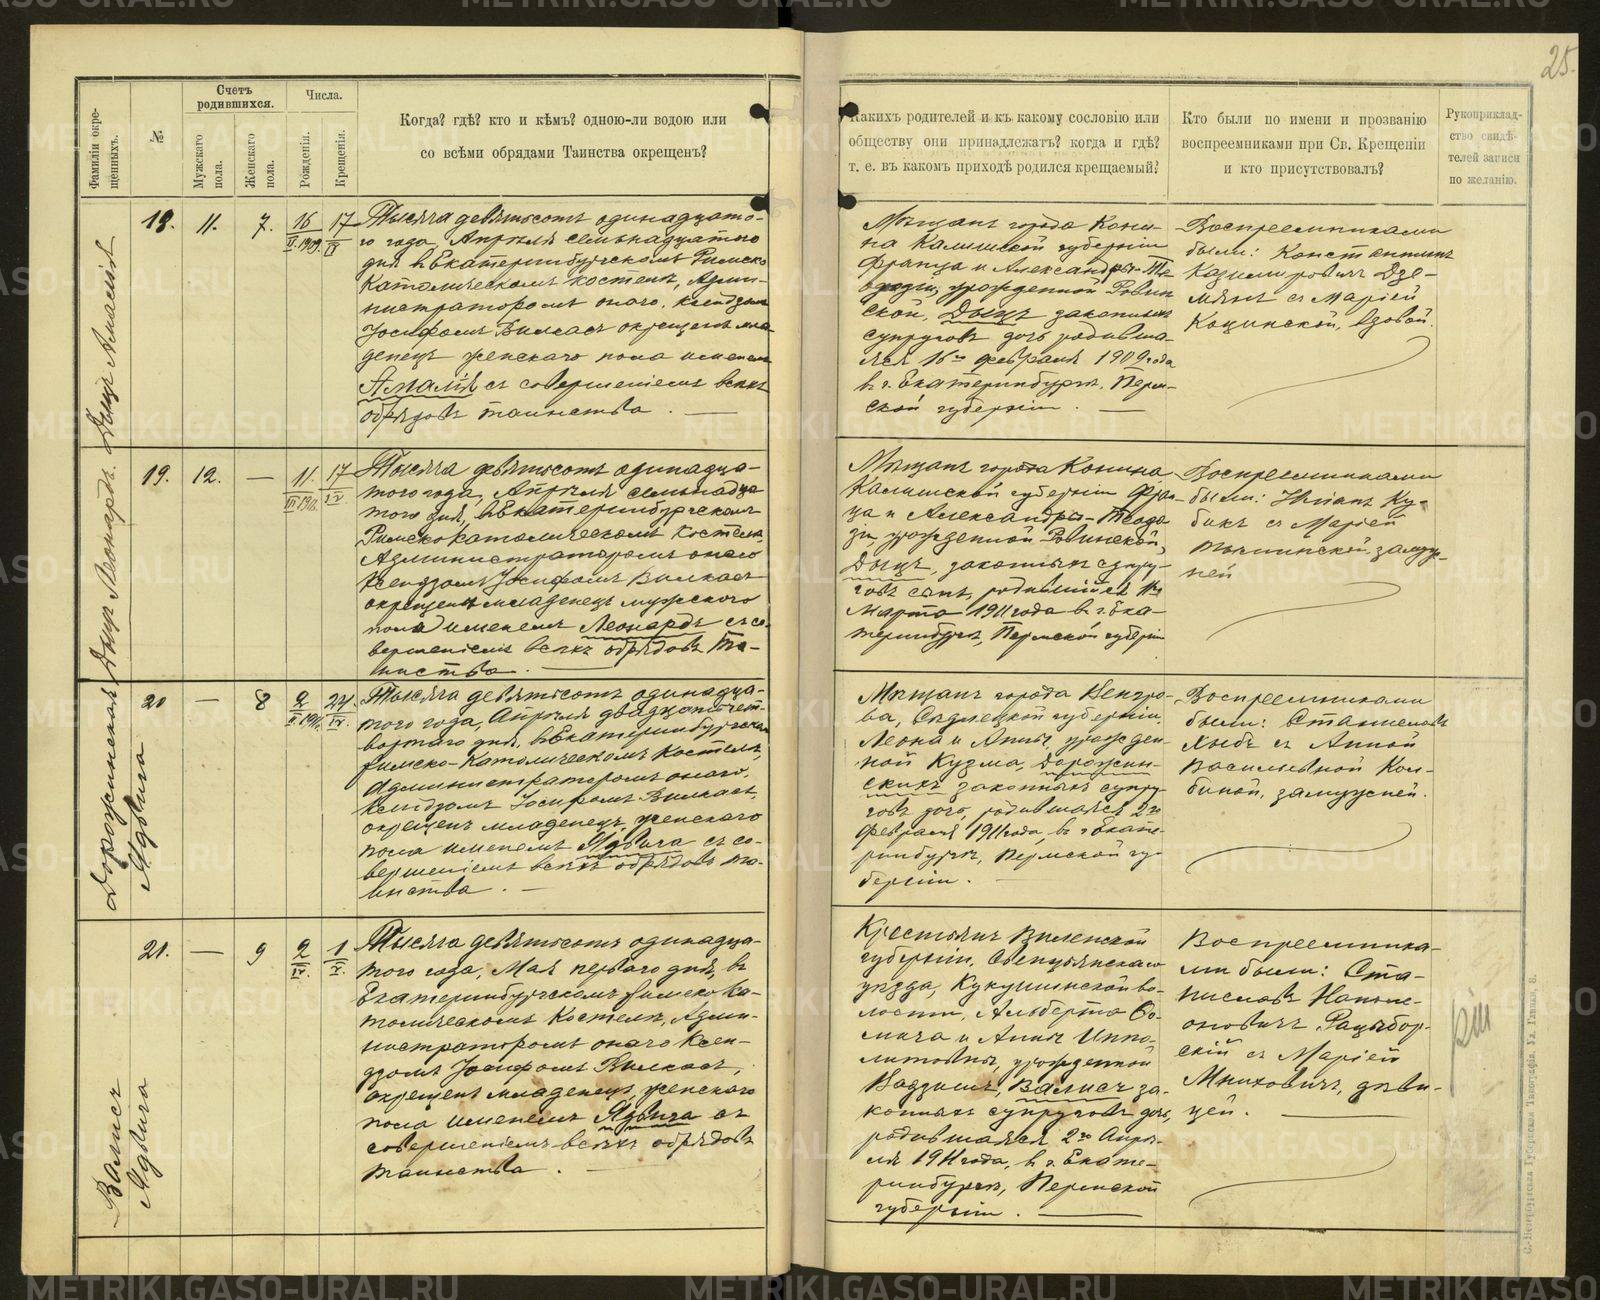 25.
Фамиліи окре-
щенныхъ.
№
Счетъ
родившихся.
Мужскаго
пола.
Женскаго
пола.
Числа.
Рожденія.
Крещенія.
Когда? гдѣ? кто и кѣмъ? одною-ли водою или
со всѣми обрядами Таинства окрещенъ?
Какихъ родителей и къ какому сословію или
обществу они принадлежатъ? когда и гдѣ?
т. е. въ какомъ приходѣ родился крещаемый?
Кто были по имени и прозванію
воспреемниками при Св. Крещеніи
и кто присутствовалъ?
Рукоприклад-
ство свидѣ-
телей записи
по желанію.
Дыцъ Амалія
18.
11.
7.
16
II. 1909.
17
IV
Тысяча девятьсотъ одинадцато-
го года, Апрѣля семьнадцатого
дня въ Екатеринбургскомъ Римско
Католическомъ костелѣ, Адми-
нистраторомъ онаго, ксендзомъ
Іосифомъ Вилкасъ окрещенъ мла-
денецъ женскаго пола именемъ
Амалія съ совершеніемъ всѣхъ
обрядовъ таинства.
Мѣщанъ города Кони-
на Калишской губерніи
Франца и Александры-Те-
одозіи, урожденной Ровин
ской, Дыцъ законныхъ
супруговъ дочь родивша-
яся 16го февраля 1909 года
въ г. Екатеринбургѣ, Перм-
ской губерніи.
Воспреемниками
были: Константинъ
Казимировичъ Дзе-
мянъ съ Маріей
Коцинской, вдовой.
Дыцъ Леонардъ.
19.
12.
—
11.
III 1911.
17
IV
Тысяча девятьсотъ одинадца-
того года, Апрѣля семьнадца
того дня, въ Екатеринбургскомъ
Римско Католическомъ Костелѣ,
Администраторомъ онаго
Ксендзомъ Іосифомъ Вилкасъ
окрещенъ младенецъ мужского
пола именемъ Леонардъ съ со-
вершеніемъ всѣхъ обрядовъ Та-
инства.
Мѣщанъ города Конина
Калишской губерніи Фран-
ца и Александры-Теодо
зіи, урожденной Ровинской,
Дыцъ, законныхъ супру-
говъ сынъ, родившійся 11го
Марта 1911 года въ г. Ека-
теринбургѣ, Пермской губерніи
Воспреемниками
были: Ку-
бикъ съ Маріей
замуж-
ней
Дорожинская
Ядвига
20
—
8
2
II 1911.
24.
IV.
Тысяча девятьсотъ одинадца-
того года, Апрѣля двадцать чет-
вертаго дня, въ Екатеринбургскомъ
Римско-Католическомъ Костелѣ,
Администраторомъ онаго,
Ксендзомъ Іосифомъ Вилкасъ,
окрещенъ младенецъ женскаго
пола именемъ Ядвига съ со-
вершеніемъ всѣхъ обрядовъ та-
инства.
Мѣщанъ города Венгро-
ва, Сѣдлецкой губерніи,
Леона и Анны, урожден-
ной Кузма, Дорожин-
скихъ законныхъ супру-
говъ дочь, родившаяся 2го
Февраля 1911 года, въ г. Екате-
ринбургѣ, Пермской гу-
берніи.
Воспреемниками
были: Станиславъ
Хыбъ съ Анной
Васильевной Кол-
биной, замужней.
Валисъ
Ядвига
21.
—
9
2
IV.
1
V.
Тысяча девятьсотъ одинадца-
того года, Мая перваго дня, въ
Екатеринбургскомъ Римско Ка-
толическомъ Костелѣ, Адми-
нистраторомъ онаго Ксен-
дзомъ Іосифомъ Вилкасъ,
окрещенъ младенецъ женскаго
пола именемъ Ядвига съ
совершеніемъ всѣхъ обрядовъ
таинства.
Крестьянъ Виленской
губерніи, Свенцянскаго
уѣзда, Кукуцишской во-
лости, Альберта Ѳо-
мича и Анны Иппо-
литовны, урожденной
Валисъ за-
конныхъ супруговъ дочь,
родившаяся 2го Апрѣ-
ля 1911 года, въ г. Екате-
ринбургѣ, Пермской
губерніи.
Воспреемника-
ми были: Ста-
ниславъ Наполе-
оновичъ Рацибор-
скій съ Маріей
Мнихович, дѣви-
цей.
С.-Петербургская Губернская Типографія. Ул. Глинки, 8.
METRIKI.GASO-URAL.RU